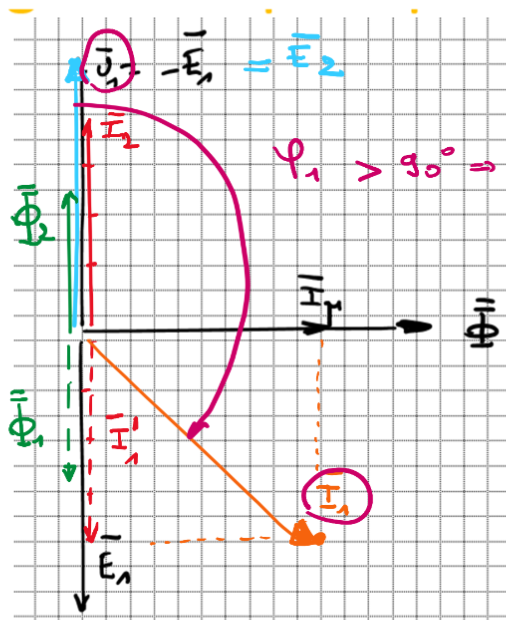 U̅₁ = -E̅₁ = E̅₂
I̅₂
φ₁ > 90° ⇒
Φ̅₂
I̅μ
Φ̅
Φ̅₁
I̅₁'
I̅₁
E̅₁